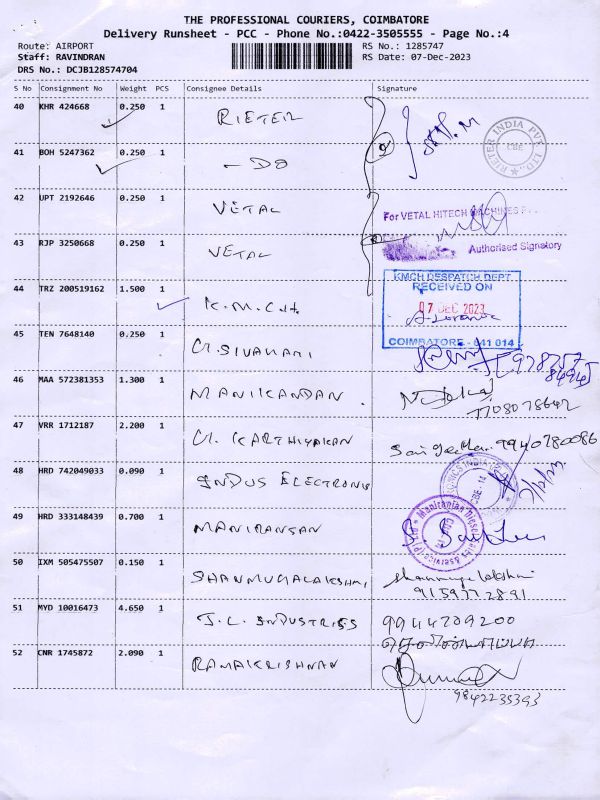 THE PROFESSIONAL COURIERS, COIMBATORE
Delivery Runsheet - PCC - Phone No.:0422-3505555 - Page No.:4
Route: AIRPORT
RS No.: 1285747
Staff: RAVINDRAN
RS Date: 07-Dec-2023
DRS No.: DCJB128574704
S No Consignment No Weight PCS Consignee Details Signature
40 KHR 424668 0.250 1 RIETER
RIETER INDIA PVT. LTD., CBE
41 BOH 5247362 0.250 1 - DO
42 UPT 2192646 0.250 1 VETAL
For VETAL HITECH MACHINES
43 RJP 3250668 0.250 1 VETAL
Authorised Signatory
44 TRZ 200519162 1.500 1 K.M.C.H
KMCH DESPATCH DEPT
RECEIVED ON
07 DEC 2023
COIMBATORE - 641 014
45 TEN 7648140 0.250 1 SIVAMANI
46 MAA 572381353 1.300 1 MANIKANDAN
7708078642
47 VRR 1712187 2.200 1 KARTHIYAKAN
9940780086
48 HRD 742049033 0.090 1 INDUS ELECTRONIS
49 HRD 333148439 0.700 1 MANIRANSAN
50 IXM 505475507 0.150 1 SHANMUGALAKSHMI
9159772891
51 MYD 10016473 4.650 1 J.L. INDUSTRIES 9944209200
52 CNR 1745872 2.090 1 RAMAKRISHNAN
9842235393